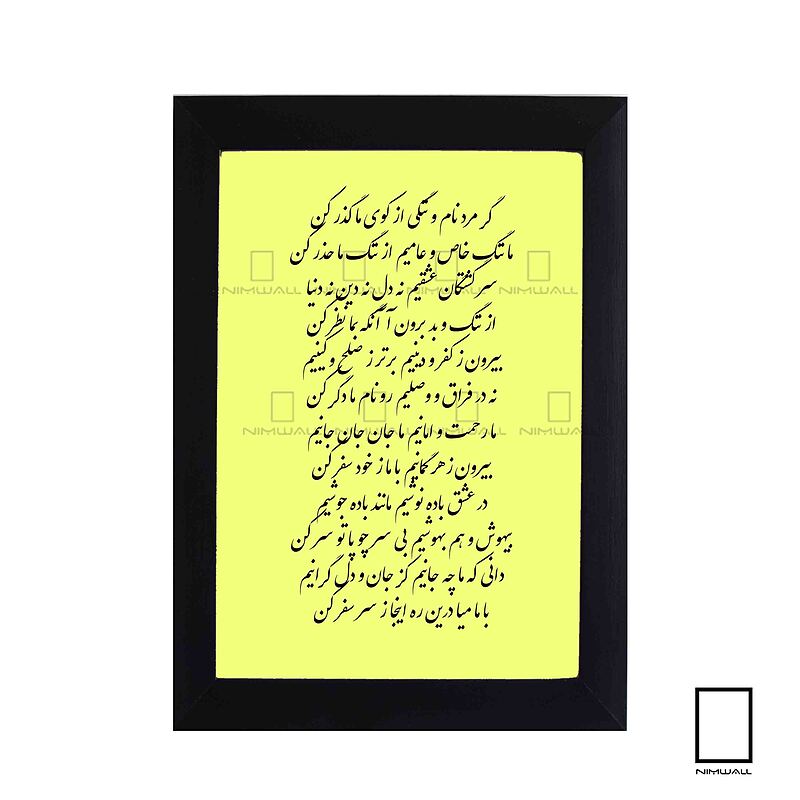 گر مرد نام و ننگی از کوی ما گذر کن
ما ننگ خاص و عامیم از ننگ ما حذر کن
سرگشتگان عشقیم نه دل نه دین نه دنیا
از ننگ و بد برون آ آنگه بما نظر کن
بیرون ز کفر و دینیم برتر ز صلح و کینیم
نه در فراق و وصلیم رو نام ما دگر کن
ما رحمت و امانیم ما جان جان جانیم
بیرون ز هر گمانیم با ما ز خود سفر کن
در عشق باده نوشیم مانند باده جوشیم
بیهوش و هم بهوشیم بی سر چو پا تو سر کن
دانی که ما چه جانیم کز جان و دل گرانیم
با ما میا درین ره اینجا ز سر سفر کن
NIMWALL NIMWALL NIMWALL NIMWALL
NIMWALL NIMWALL NIMWALL NIMWALL
NIMWALL